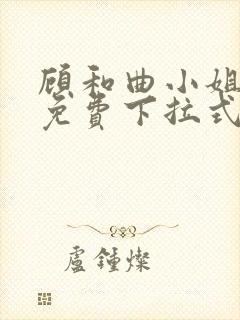 顾和曲小姐
免费下拉式
盧鍾燦